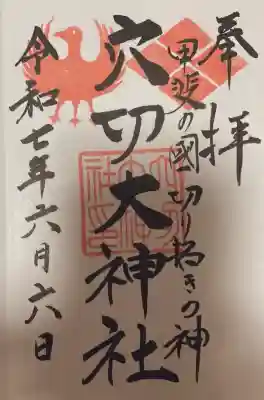 奉拝
甲斐の國切り拓きの神
穴切大神社
令和七年六月六日